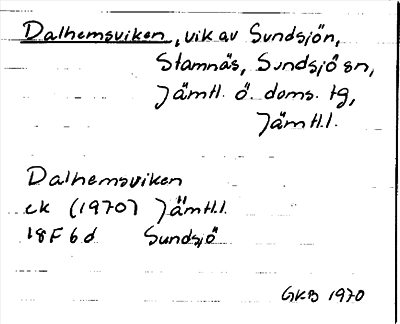 Dalhemsviken, vik av Sundsjön,
Stamnäs, Sundsjö sn,
Jämtl. ö. doms. tg,
Jämtl.l.
Dalhemsviken
ek (1970) Jämtl.l.
18F6d Sundsjö
GKB 1970